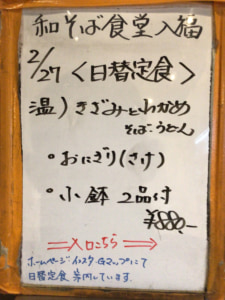 和そば食堂入福
2/27 <日替定食>
温) きざみとわかめ
そば・うどん
・おにぎり(さけ)
・小鉢 2品付
¥880-
⇒入口こちら⇒
ホームページ インスタ Gマップにて
日替定食 案内しています。